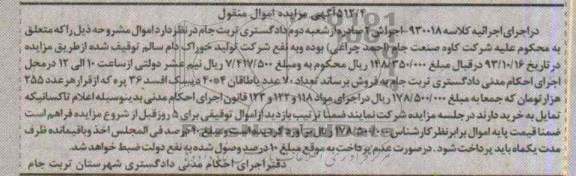 ۵۱۲۰۴ آگهی مزایده اموال منقول
در اجرای اجرائیه کلاسه ۹۳۰۰۱۸ -اجرائی صادره از شعبه دوم دادگستری تربت جام در نظر دارد اموال مشروحه ذیل را که متعلق
به محکوم علیه شرکت کاوه صنعت جام (احمد چراغی) بوده و به نفع شرکت تولید خوراک دام سالم توقیف شده از طریق مزایده
در تاریخ ۹۳/۱۰/۱۶ در قبال مبلغ ۱۴۸/۳۵۰/۰۰۰ ریال محکوم به و مبلغ ۷/۴۱۷/۵۰۰ ریال نیم عشر دولتی از ساعت ۱۰ الی ۱۲ در محل
اجرای احکام مدنی دادگستری تربت جام به فروش برساند تعداد ۷۰ عدد یاطاقان ۴۰۵۴ دیسک افسد ۳۶ پره که از قرار هر عدد ۲۵۵
هزار تومان که جمعا به مبلغ ۱۷۸/۵۰۰/۰۰۰ ریال در اجرای مواد ۱۱۸ و ۱۲۲ و ۱۲۳ قانون اجرای احکام مدنی بدینوسیله اعلام تا کسانیکه
تمایل به خرید دارند در جلسه مزایده شرکت نمایند ضمنا ترتیب بازدید از اموال توقیفی برای ۵ روز قبل از شروع مزایده فراهم است
ضمنا قیمت پایه اموال برابر نظر کارشناس ۱۷۸/۵۰۰/۰۰۰ ریال برآورد گردیده است و مبلغ ۱۰ درصد فی المجلس اخذ و باقیمانده ظرف
مدت یکماه باید پرداخت شود . در صورت عدم پرداخت به موقع مبلغ ۱۰ درصد وصول شده به نفع دولت ضبط خواهد شد.
دفتر اجرای احکام مدنی دادگستری شهرستان تربت جام